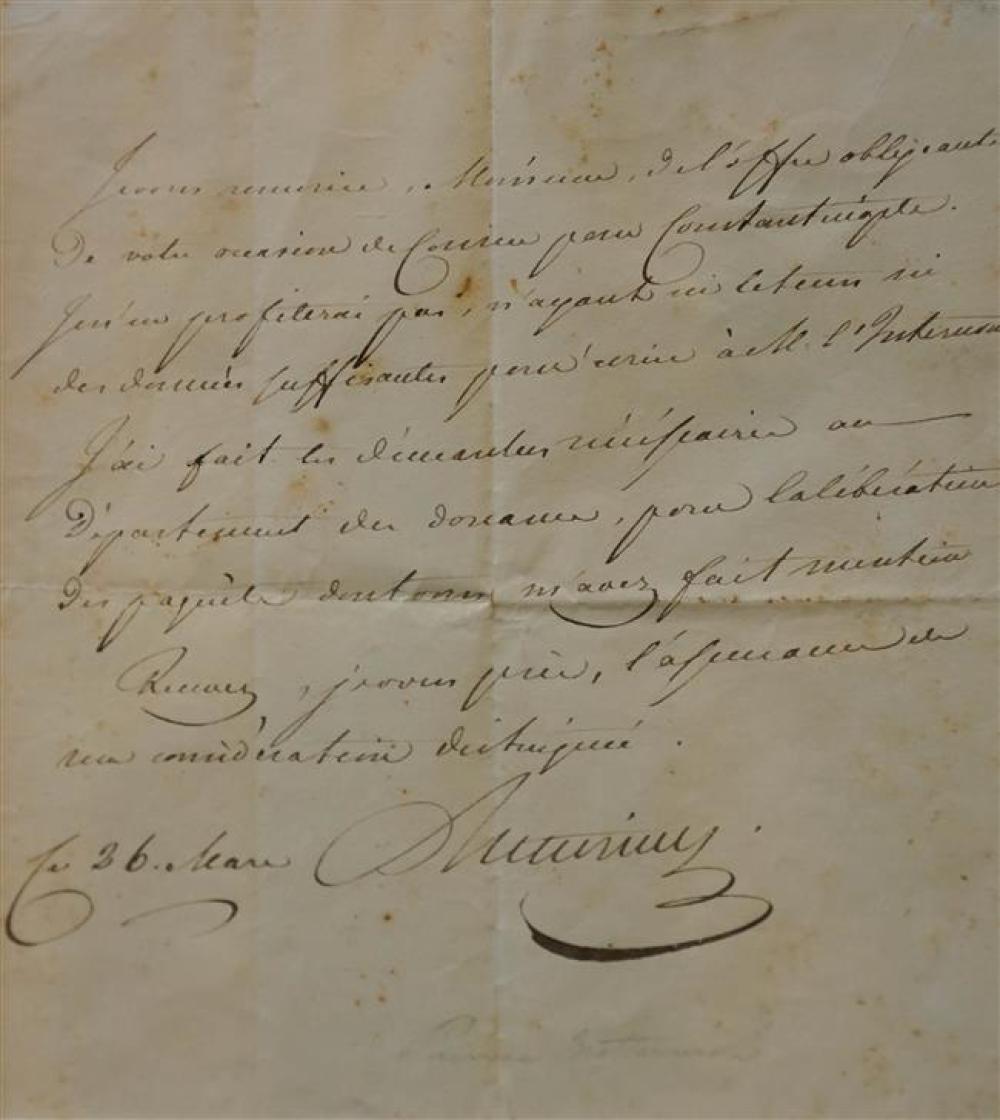 Je vous remercie, Monsieur, de l'offre obligeante
de votre occasion de Courier pour Constantinople.
Je n'en profiterai pas, n'ayant ni le tems ni
des données suffisantes pour écrire à M. l'Internonce
J'ai fait les démandes nécéssaires au
Département des douanes, pour la libération
des paquets dont vous m'avez fait mention
Recevez, je vous prie, l'assurance de
ma considération distinguée.
Ce 26. Mars Metternich
Prince Metternich